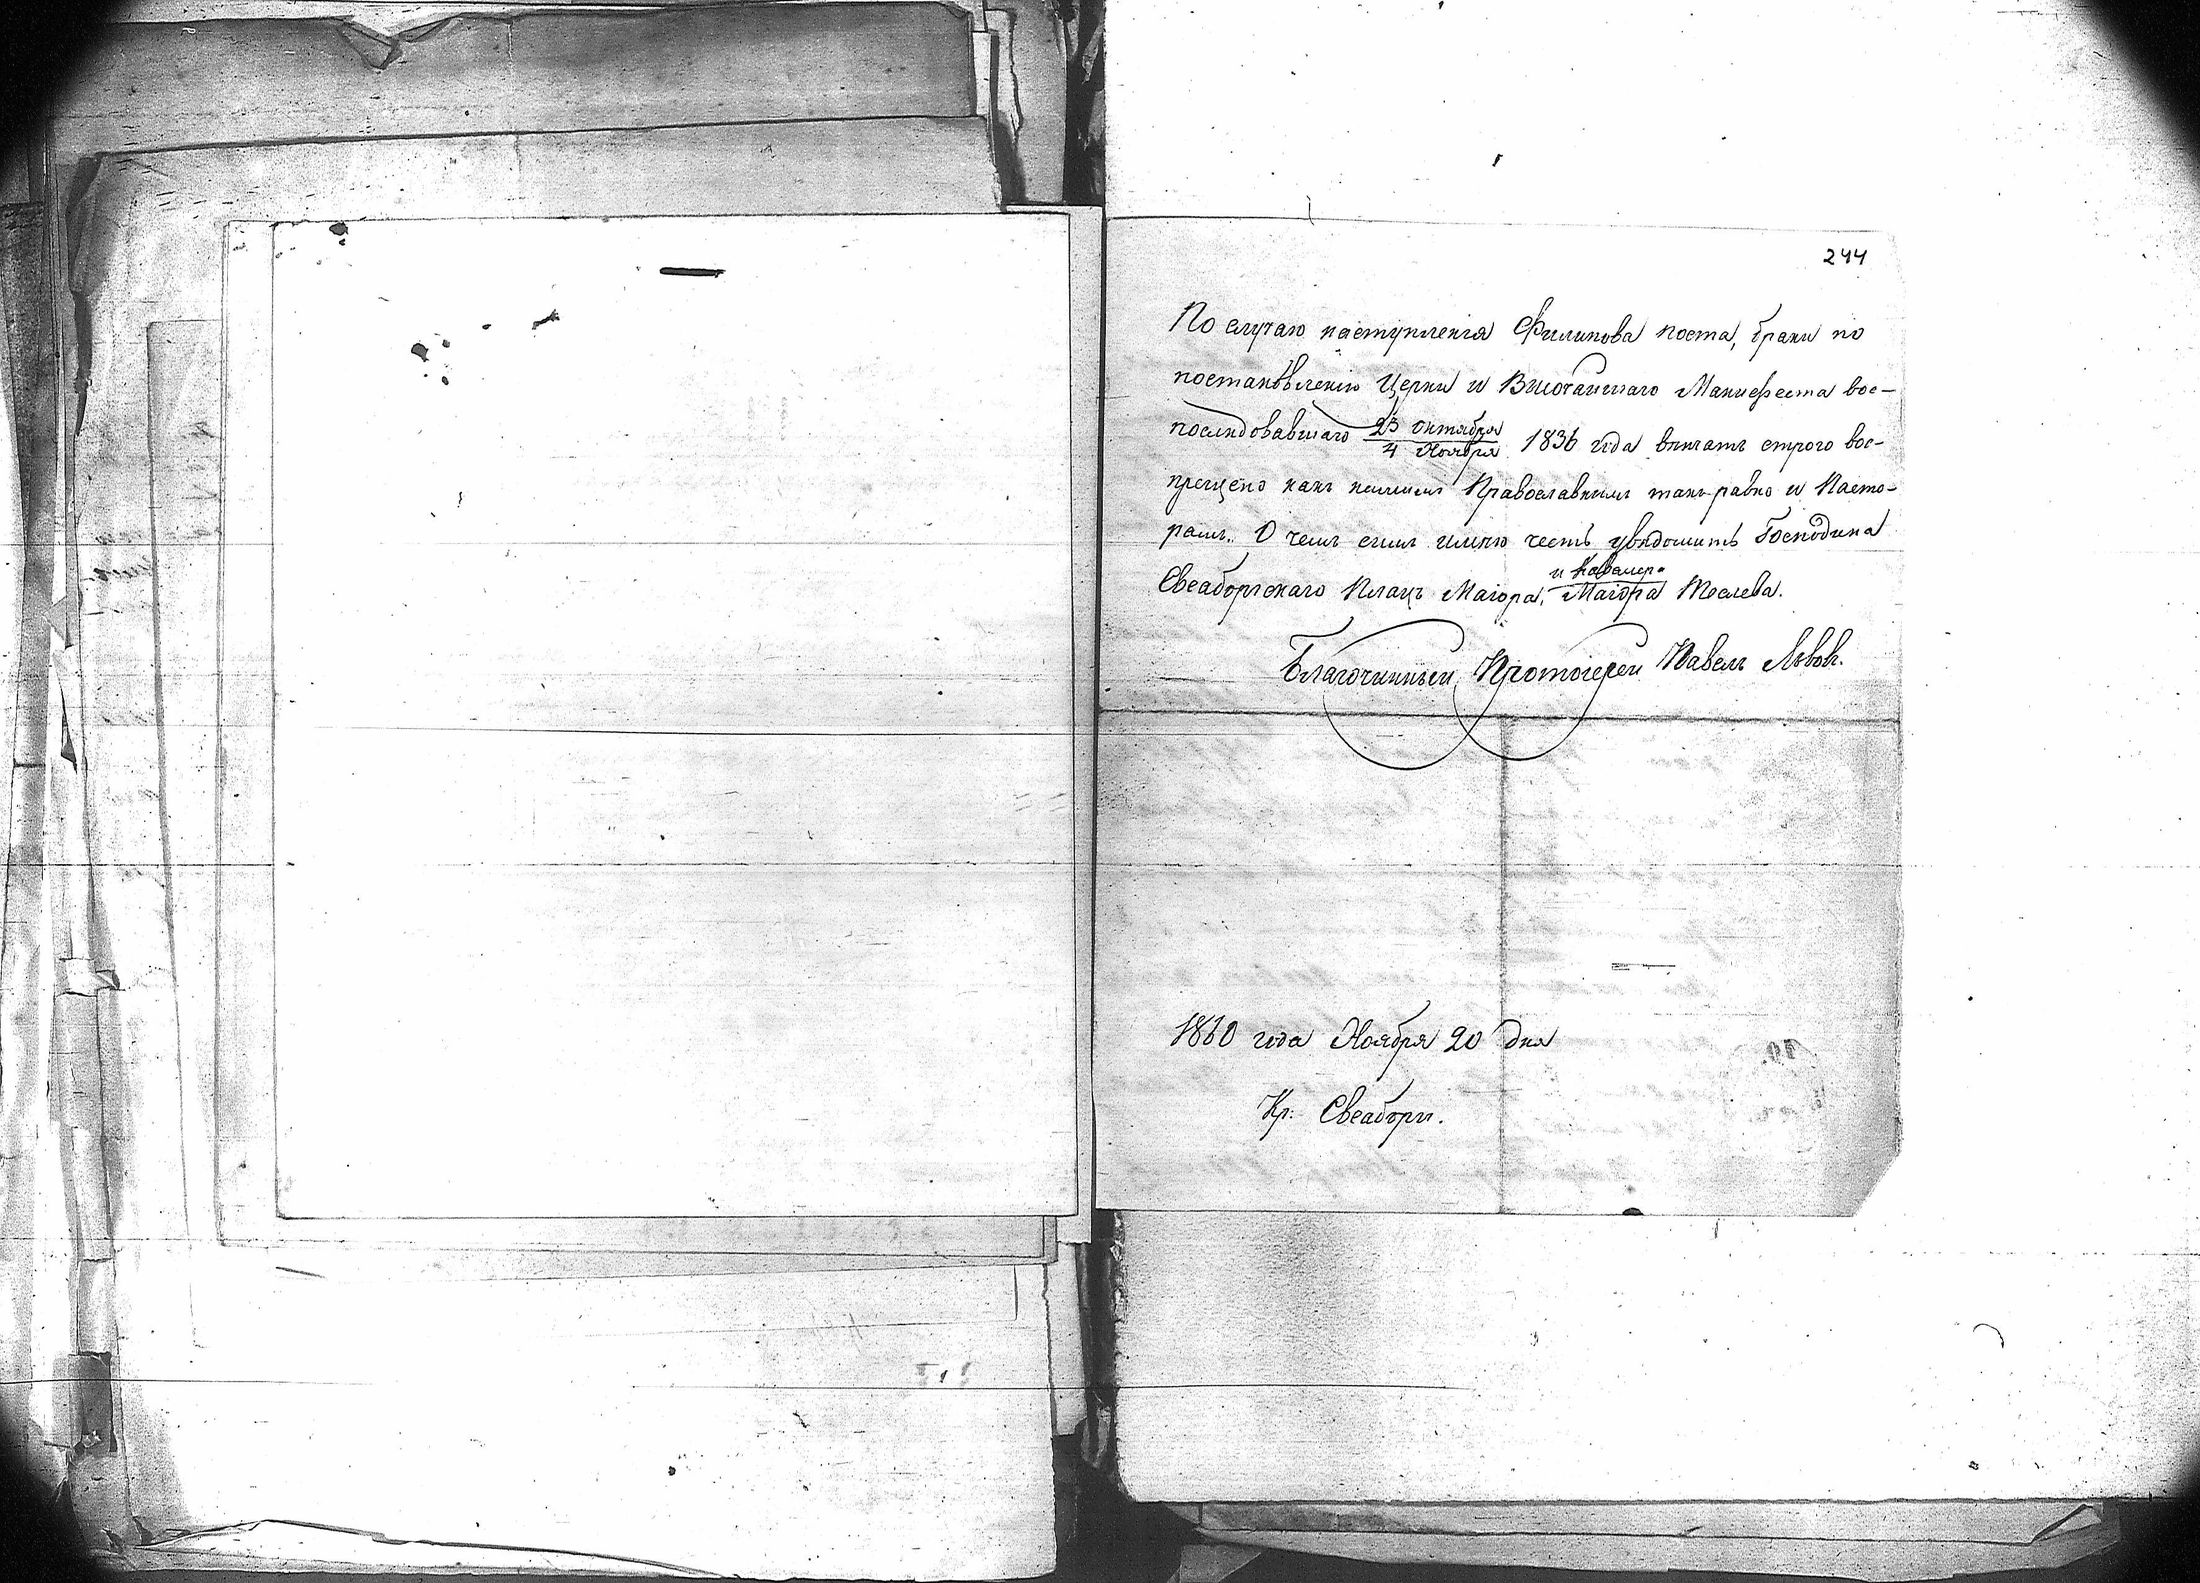 244
По случаю наступленія Филипова поста, браки по
постановленію Церкви и Высочайшаго Манифеста вос-
послѣдовавшаго 23 октября / 4 Ноября 1836 года вѣнчать строго вос-
прещено какъ Православнымъ такъ равно и Пасто-
рамъ. О чемъ симъ имѣю честь увѣдомить Господина
Свеаборгскаго Плацъ Маіора, Маіора и Кавалера Теслева.
Благочинный, Протоіерей Павелъ Львовъ.
1860 года Ноября 20 дня
Кр: Свеаборгъ.